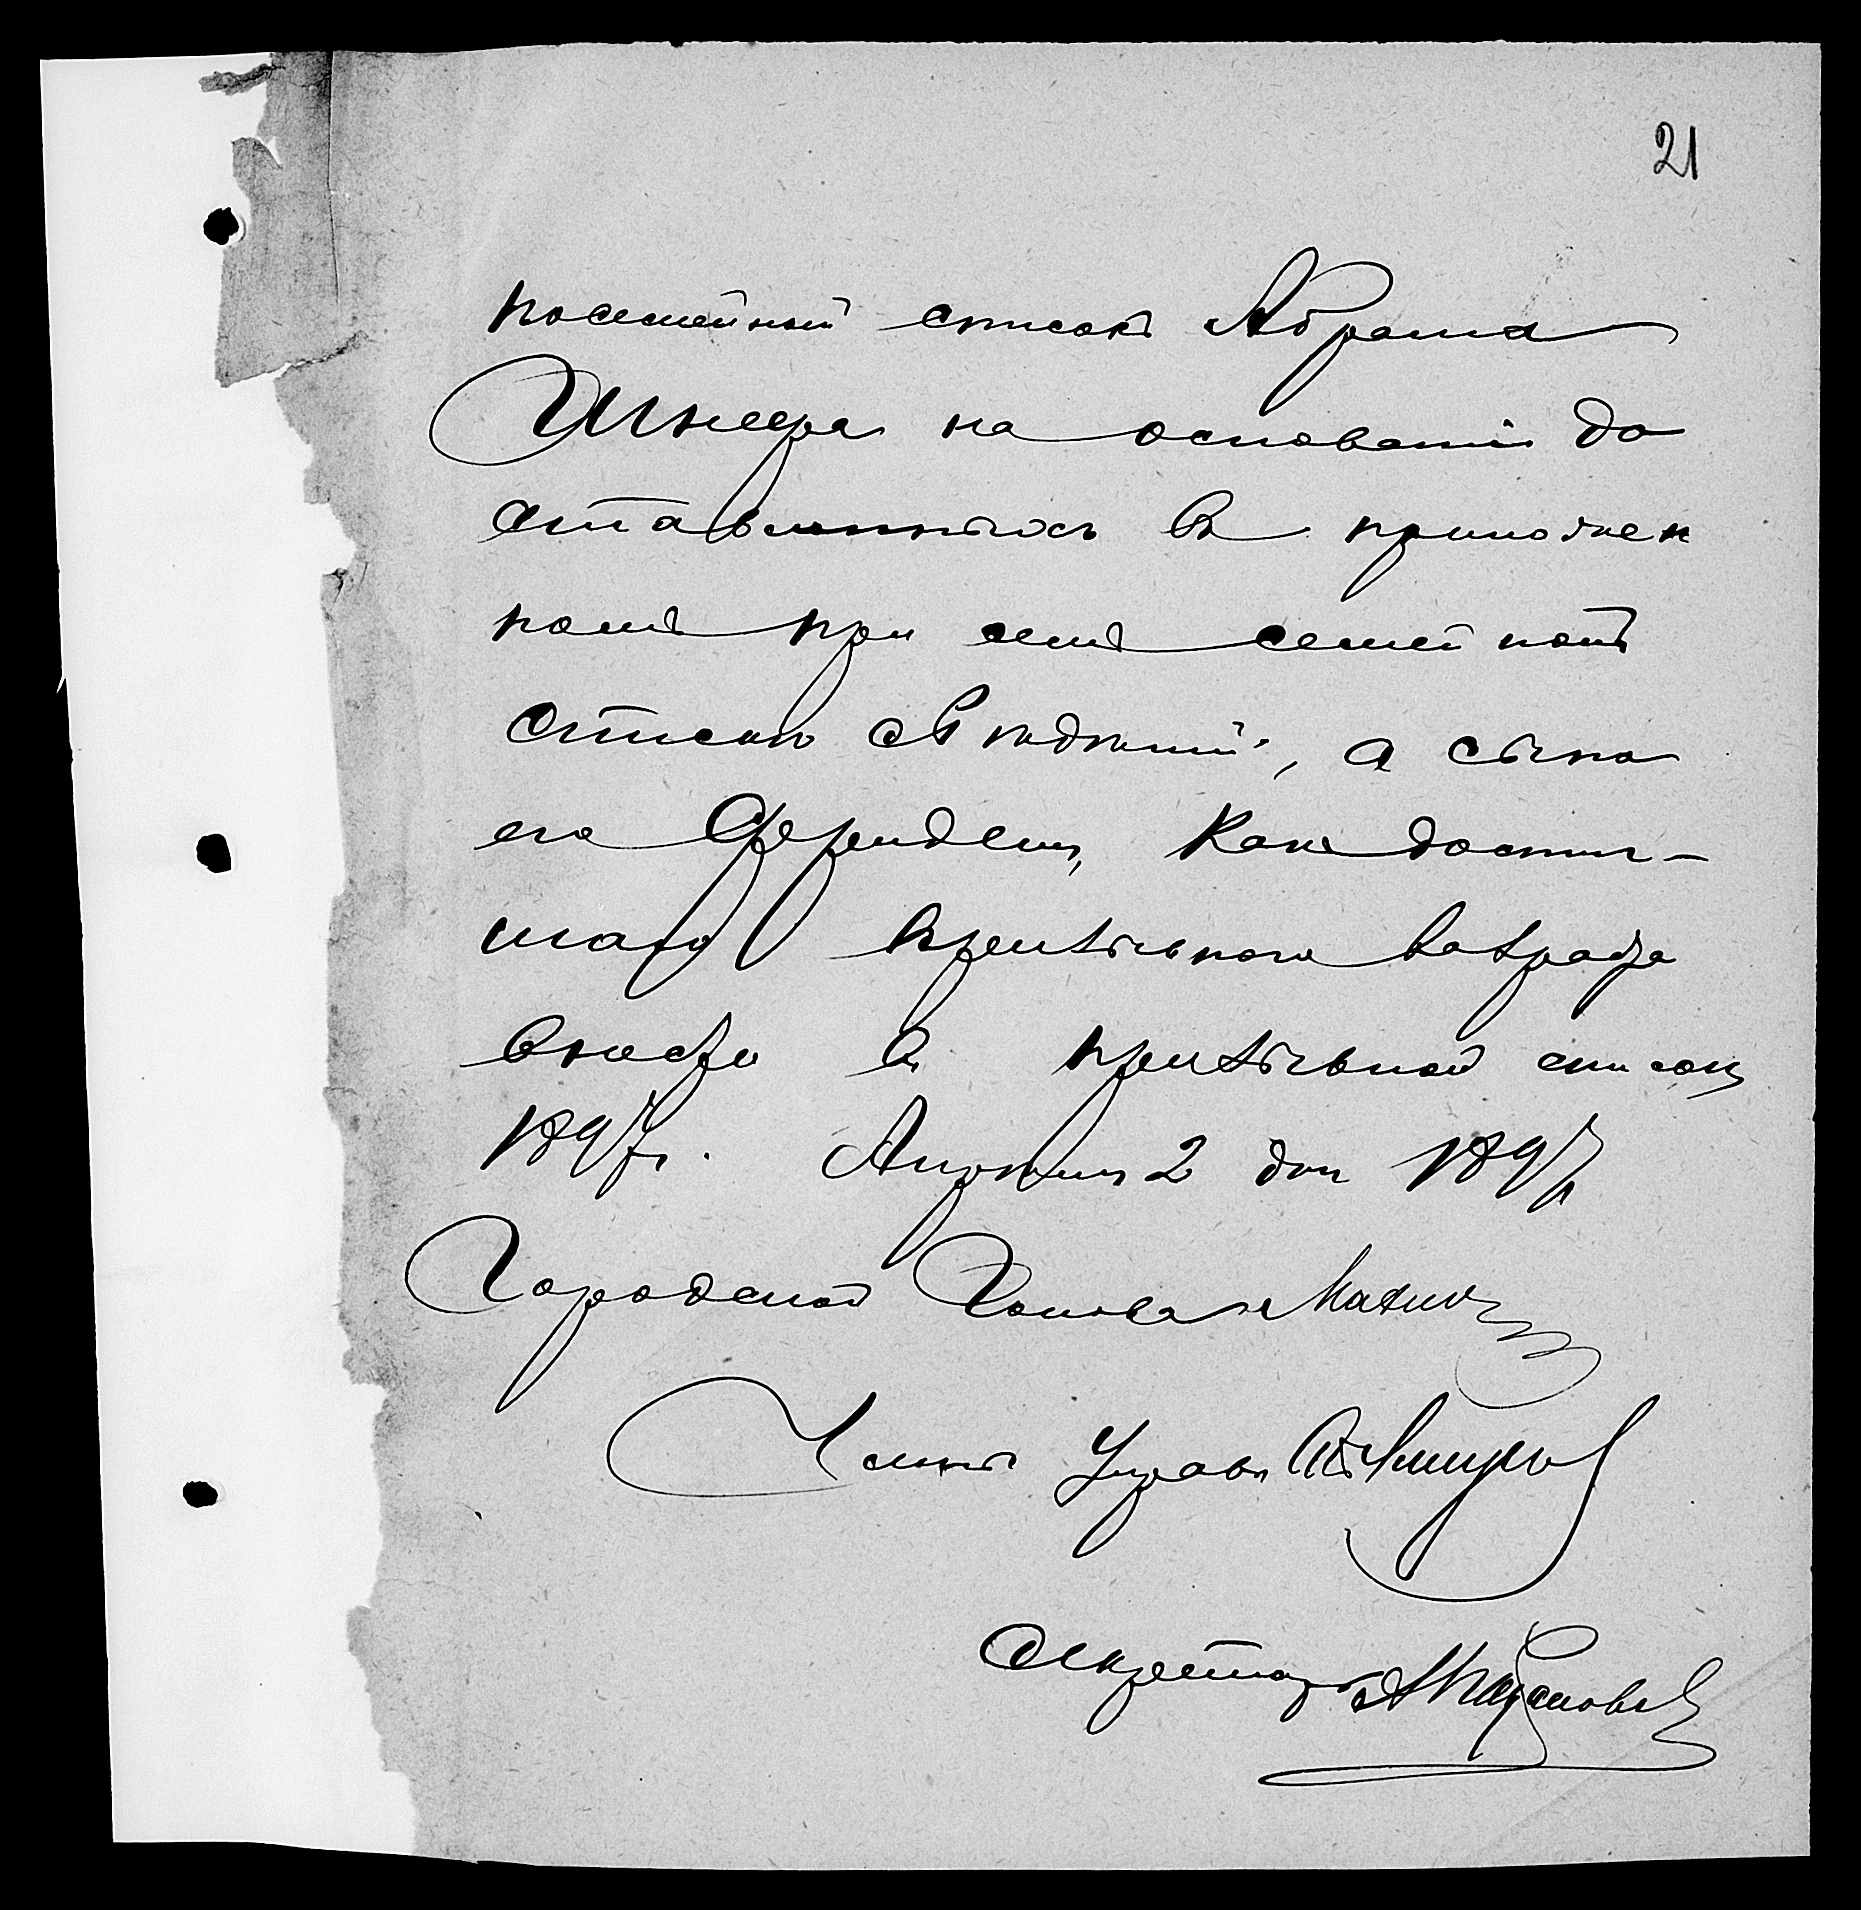 21
посемейный списокъ Абрама
Шнеера на основаніи до
ставившихся въ приложен
номъ при семъ семейномъ
списки свѣдѣній, а сына
его как достиг-
шаго призывного возраста
внести въ призывной списокъ
1897 г. Апрѣля 2 дня 1897
Городской Голова
Членъ Управы
Секретарь